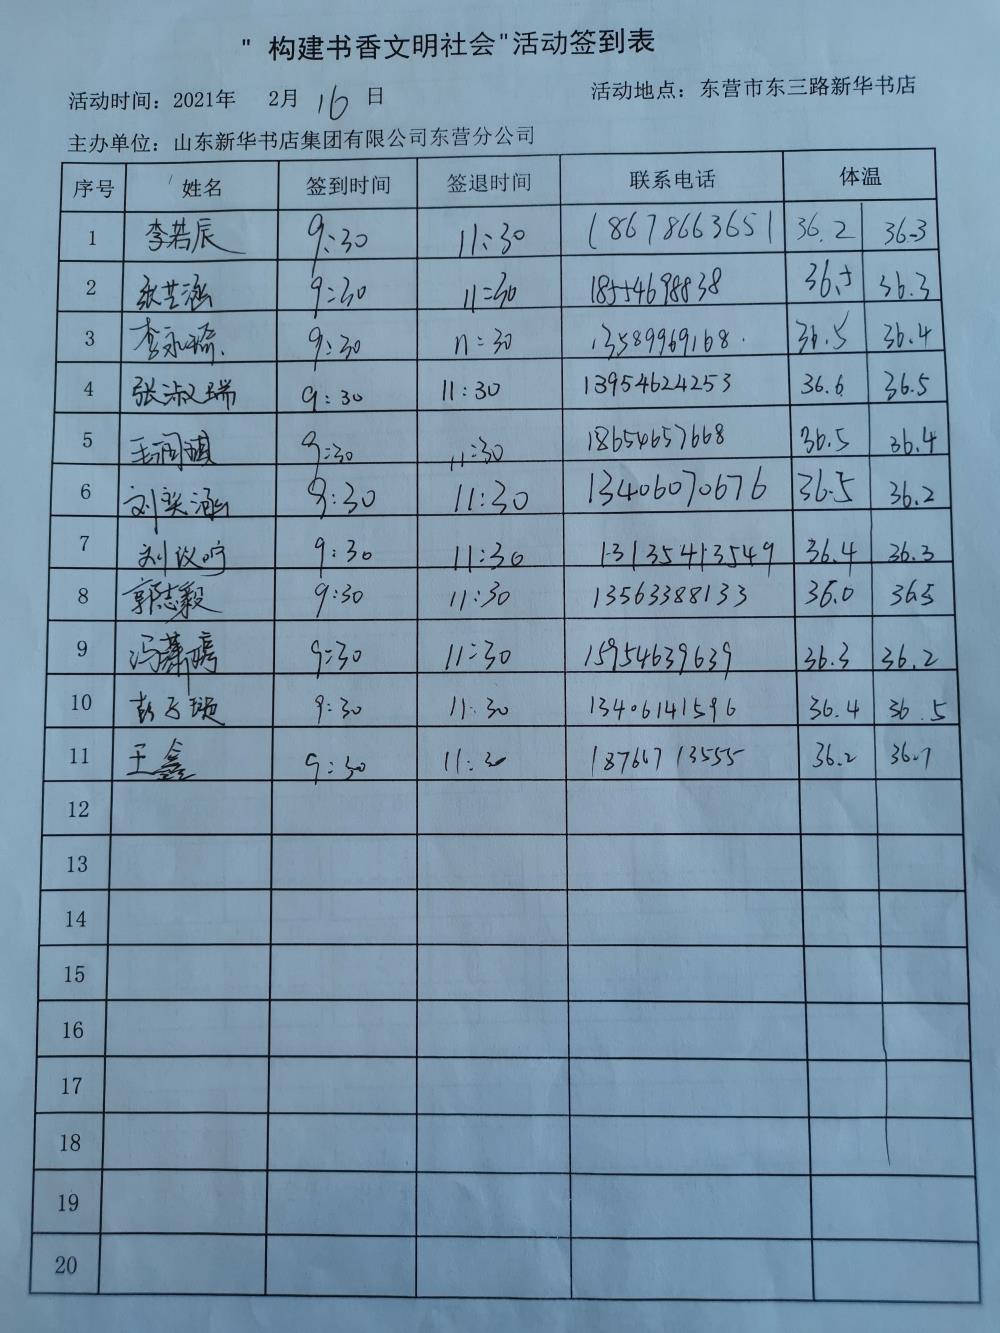 "构建书香文明社会"活动签到表
活动时间：2021年 2月 16 日 活动地点：东营市东三路新华书店
主办单位：山东新华书店集团有限公司东营分公司
序号 姓名 签到时间 签退时间 联系电话 体温
1 李若辰 9:30 11:30 18678663651 36.2 36.3
2 张芸涵 9:30 11:30 18554698838 36.5 36.3
3 李永 9:30 11:30 13589969168 36.5 36.4
4 张淑瑞 9:30 11:30 13954624253 36.6 36.5
5 王润琪 9:30 11:30 18654657668 36.5 36.4
6 刘奕涵 9:30 11:30 13406070676 36.5 36.2
7 刘 9:30 11:30 13135413549 36.4 36.3
8 郭志毅 9:30 11:30 13563388133 36.0 36.5
9 冯 9:30 11:30 15954639639 36.3 36.2
10 彭子 9:30 11:30 13406141596 36.4 36.5
11 王鑫 9:30 11:30 18766713555 36.2 36.7
12
13
14
15
16
17
18
19
20